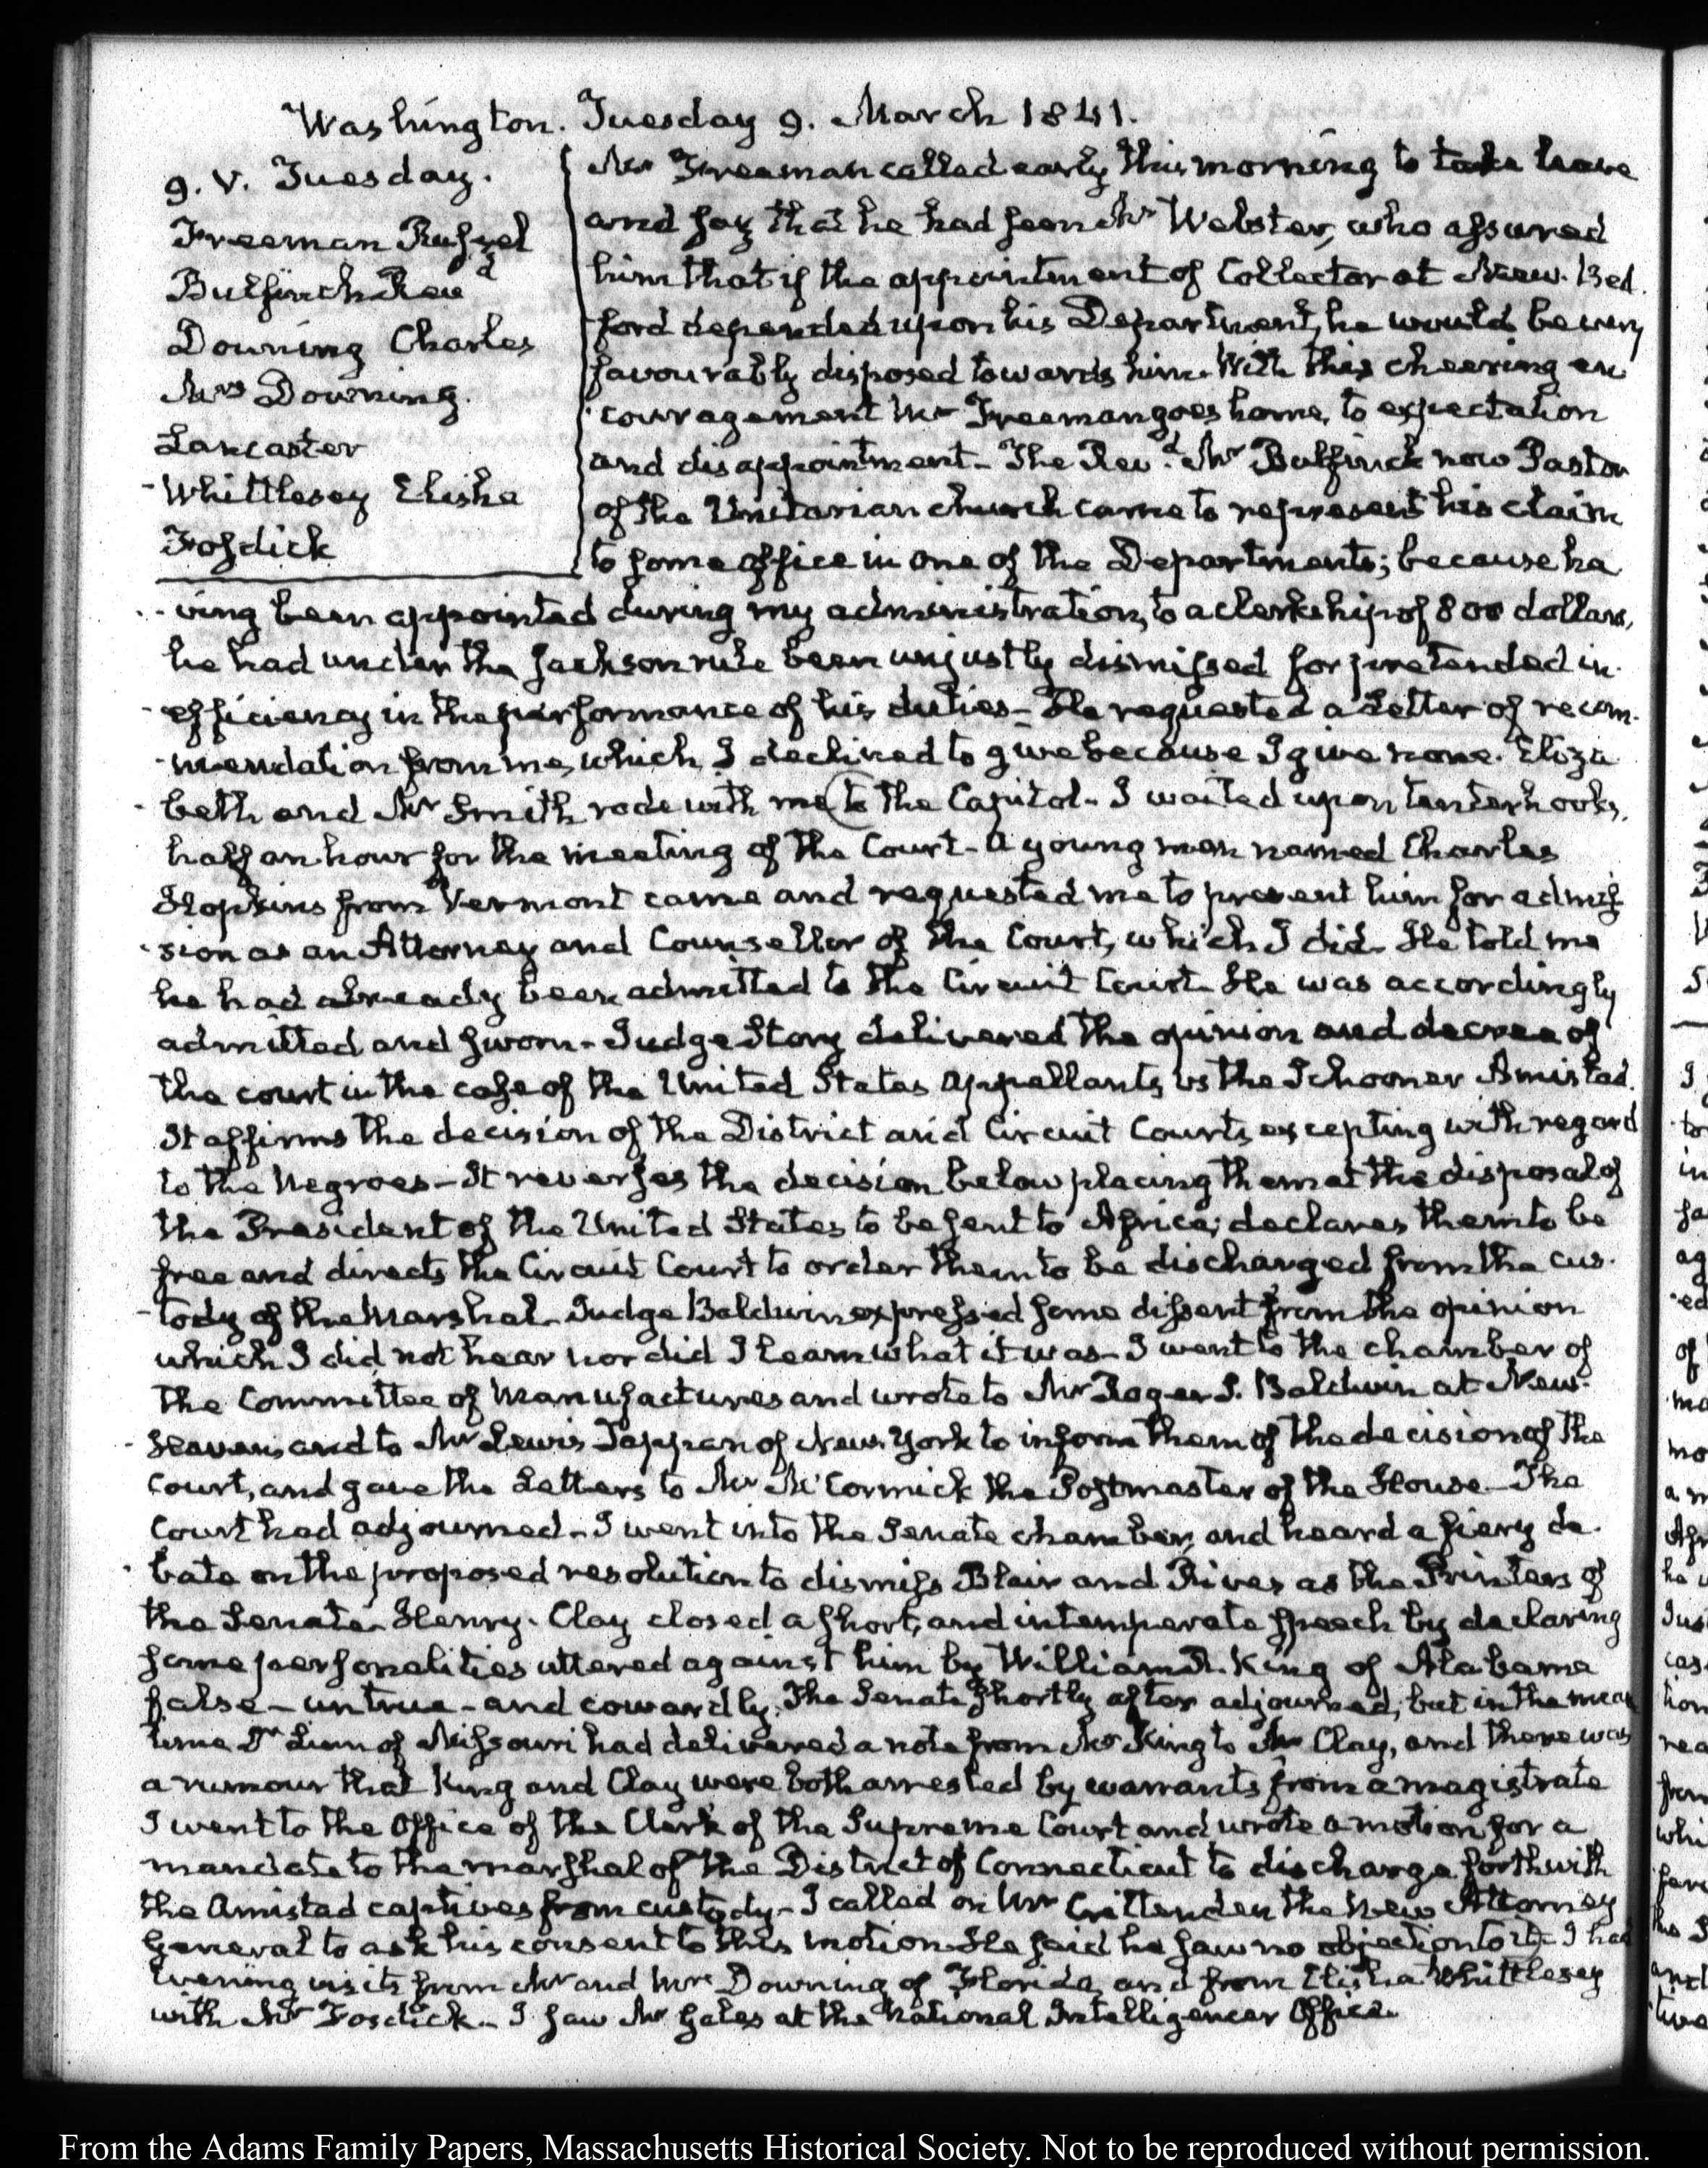 Washington. Tuesday 9. March 1841.
9. V. Tuesday.
Freeman Russel
Bulfinch Revd
Downing Charles
Mrs Downing.
Lancaster
Whittlesey Elisha
Fosdick
Mr Freeman called early this morning to take leave
and say that he had seen Mr Webster, who assured
him that if the appointment of Collector at New-Bed.
ford depended upon his Department, he would be very
favourably disposed towards him. With this cheering en
couragement Mr Freeman goes home, to expectation
and disappointment- The Revd. Mr Bulfinch now Pastor
of the Unitarian church came to represent his claim
to some office in one of the Departments; because ha
-ving been appointed during my administration, to a clerkship of 800 dollars,
he had under the Jackson rule been unjustly dismissed for pretended in-
-efficiency in the performance of his duties- He requested a Letter of recom-
-mendation from me, which, I declined to give because I give none. Eliza
-beth and Mr Smith rode with me to the Capitol- I waited upon tenterhooks,
half an hour for the meeting of the Court- A young man named Charles
Hopkins from Vermont came and requested me to present him for admis
-sion as an Attorney and Counsellor of the Court, which I did- He told me
he had already been admitted to the Circuit Court- He was accordingly
admitted and sworn- Judge Story delivered the opinion and decree of
the court in the case of the United States appellants, vs the Schooner Amistad.
It affirms the decision of the District and Circuit Courts, excepting with regard
to the Negroes- It reverses the decision below placing them at the disposal of
the President of the United States to be sent to Africa; declares them to be
free and directs the Circuit Court to order them to be discharged from the cus-
-tody of the Marshal- Judge Baldwin expressed some dissent from the opinion
which I did not hear nor did I learn what it was- I went to the chamber of
the Committee of Manufactures and wrote to Mr Roger S. Baldwin at New-
-Haven, and to Mr Lewis Tappan of New York to inform them of the decision of the
Court, and gave the Letters to Mr McCormick the Postmaster of the House- The
Court had adjourned- I went into the Senate chamber, and heard a fiery de-
-bate on the proposed resolution to dismiss Blair and Rives as the Printers of
the Senate- Henry Clay closed a short, and intemperate speech by declaring
some personalities uttered against him by William R. King of Alabama
false- untrue- and cowardly. The Senate shortly after adjourned; but in the mean
time Dr Linn of Missouri had delivered a note from Mr King to Mr Clay, and there was
a rumour that King and Clay were both arrested by warrants from a magistrate
I went to the Office of the Clerk of the Supreme Court and wrote a motion for a
mandate to the marshal of the District of Connecticut to discharge forthwith
the Amistad captives from custody- I called on Mr Crittenden the New Attorney
General to ask his consent to this motion. He said he saw no objection to it- I had
Evening visits from Mr and Mrs Downing of Florida, and from Elisha Whittlesey
with Mr Fosdick- I saw Mr Gales at the National Intelligencer Office.
From the Adams Family Papers, Massachusetts Historical Society. Not to be reproduced without permission.